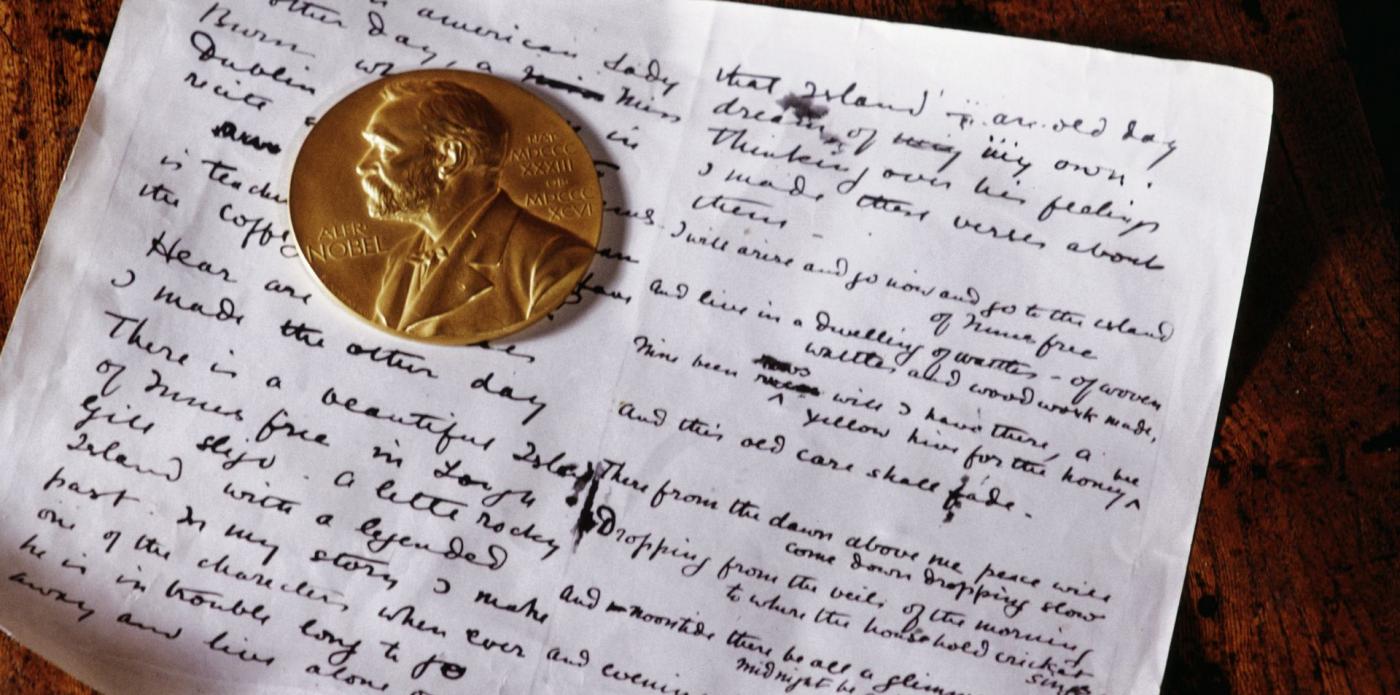 american Lady
other day, a Miss
Burn
Dublin in
recite
is
the coffy
Hear are have
I made the other day
There is a beautiful Island
of Innis free in Lough
Gill Sligo. A little rocky
Island with a legended
past. In my story I make
one of the characters when ever
he is in trouble long to go
away and live alone
ALFR.
NOBEL
NAT.
MDCCC
XXXIII
OB.
MDCCC
XCVI
that Island – an old day
dream of my own.
Thinking over his feelings
I made these verses about
them –
I will arise and go now and go to the island
of Innis free
And live in a dwelling of wattles – of woven
wattles and wood work made,
Nine bean rows will I have there, a bee
yellow hive for the honey
And this old care shall fade.
There from the dawn above me peace will
come down dropping slow
Dropping from the veils of the morning
to where the household cricket
sings
And noontide there be all a glimm
midnight be
And evening